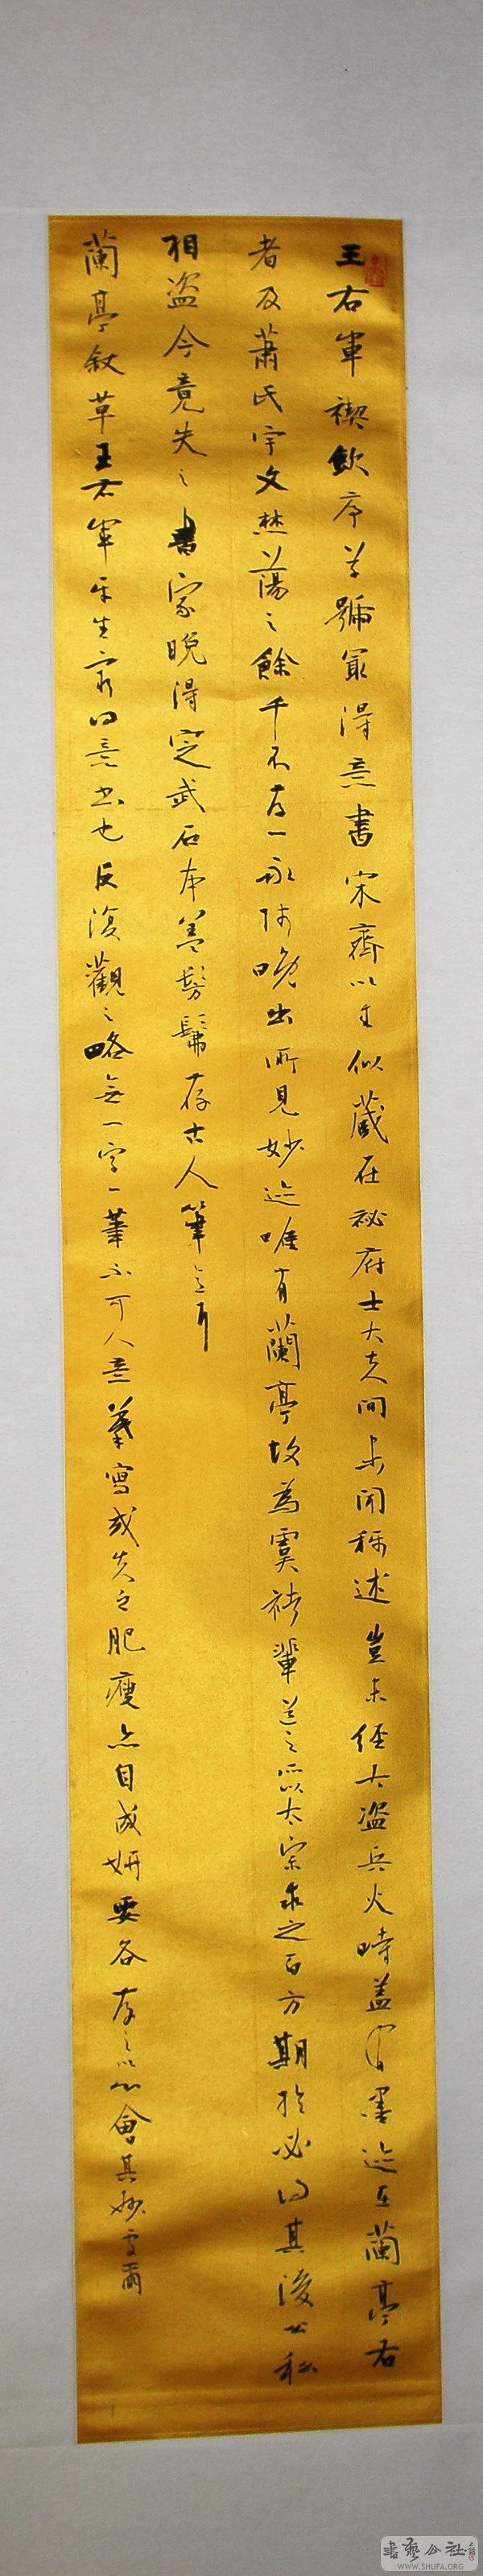 王右軍禊飲序草號最得意書宋齊以來似藏在秘府士大夫間未聞稱述豈未經大盜兵火時蓋有墨迹在蘭亭右
者及蕭氏宇文焚蕩之餘千不存一永師晚出所見妙迹唯有蘭亭故為虞褚輩道之所以太宗求之百方期於必得其後公私
相盜今竟失之書家晚得定武石本蓋髣髴存古人筆意耳
蘭亭敘草王右軍平生最得意書也反復觀之略無一字一筆不可人意摹寫或失之肥瘦亦自成妍要各存之以心會其妙處爾
書藝公社
WWW.SHUFA.ORG